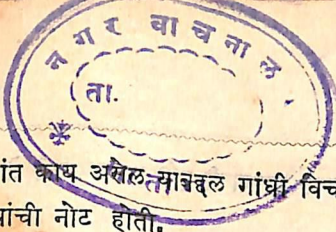 नगर वाचनाल
ता.
ांत काय असेल याबद्दल गांधी विच
यांची नोट होती.